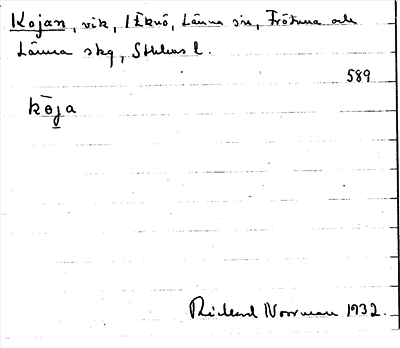 Kojan, vik, 1 Eknö, Länna sn, Frötuna och
Länna skg, Sthlms l.
589
kōja
Rickard Norrman 1932.